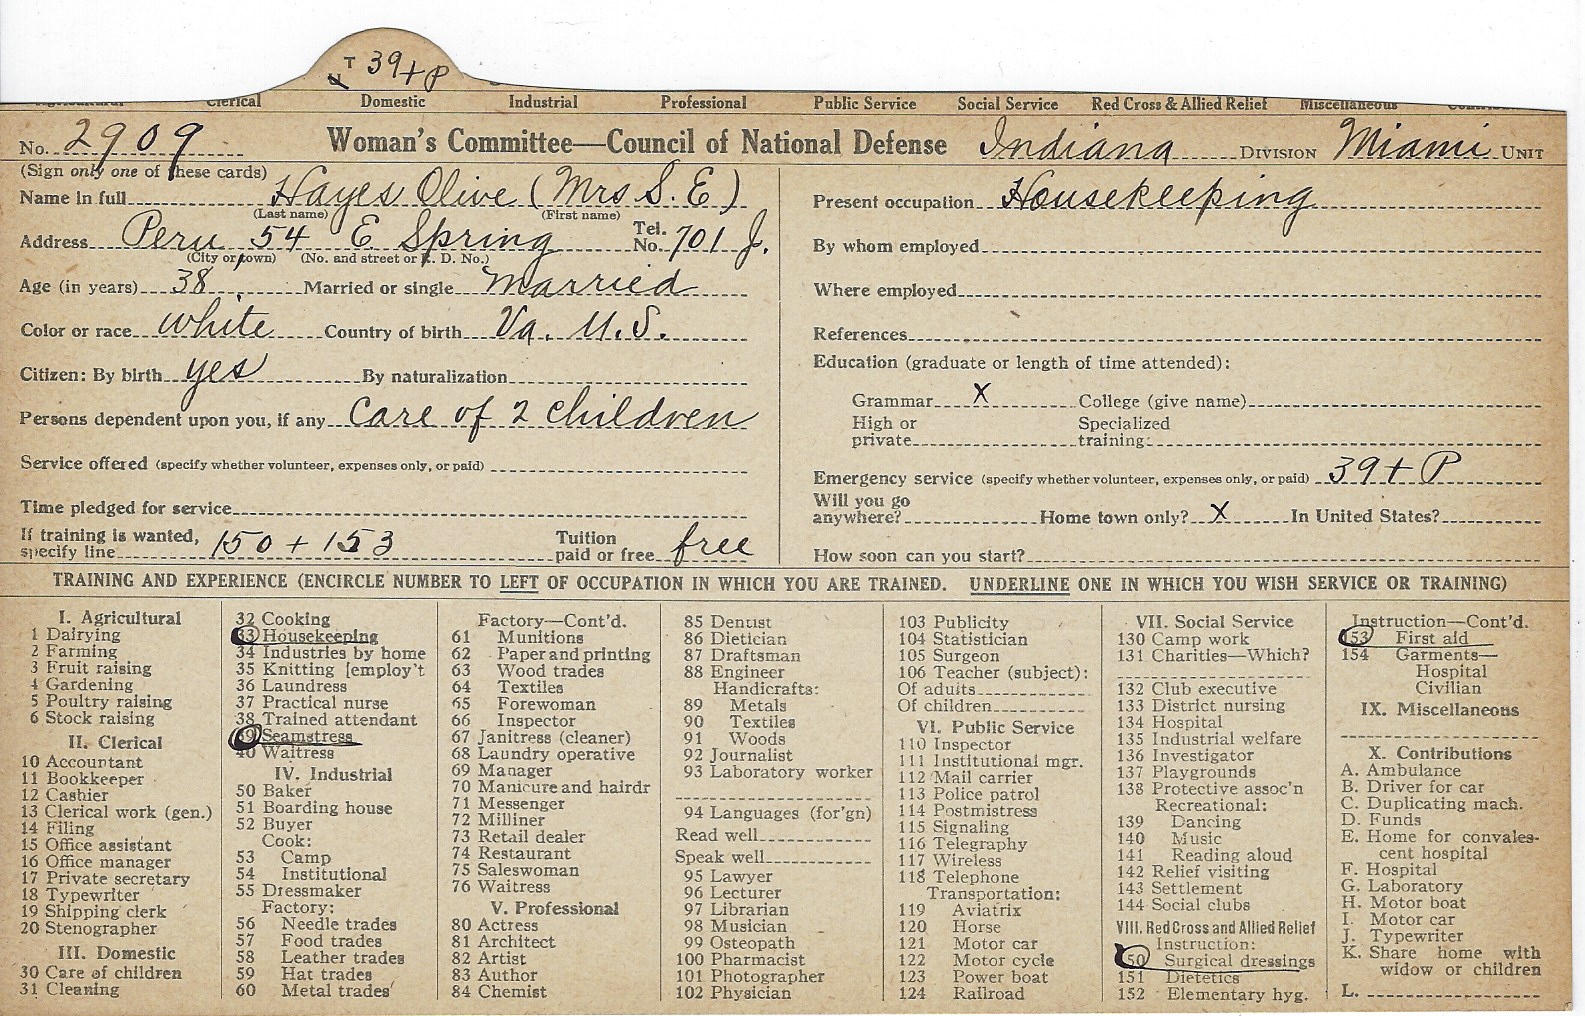 T 39 + P
Agricultural Clerical Domestic Industrial Professional Public Service Social Service Red Cross & Allied Relief Miscellaneous
No. 2909 Woman's Committee—Council of National Defense Indiana DIVISION Miami UNIT
(Sign only one of these cards)
Name in full Hayes Olive (Mrs S. E)
(Last name) (First name)
Address Peru 54 E Spring Tel. No. 701 J.
(City or town) (No. and street or R. D. No.)
Age (in years) 38 Married or single Married
Color or race white Country of birth Va. U.S.
Citizen: By birth yes By naturalization
Persons dependent upon you, if any Care of 2 children
Service offered (specify whether volunteer, expenses only, or paid)
Time pledged for service
If training is wanted, specify line 150 + 153 Tuition paid or free free
Present occupation Housekeeping
By whom employed
Where employed
References
Education (graduate or length of time attended):
Grammar X College (give name)
High or private Specialized training:
Emergency service (specify whether volunteer, expenses only, or paid) 39 + P
Will you go anywhere? Home town only? X In United States?
How soon can you start?
TRAINING AND EXPERIENCE (ENCIRCLE NUMBER TO LEFT OF OCCUPATION IN WHICH YOU ARE TRAINED. UNDERLINE ONE IN WHICH YOU WISH SERVICE OR TRAINING)
I. Agricultural
1 Dairying
2 Farming
3 Fruit raising
4 Gardening
5 Poultry raising
6 Stock raising
II. Clerical
10 Accountant
11 Bookkeeper
12 Cashier
13 Clerical work (gen.)
14 Filing
15 Office assistant
16 Office manager
17 Private secretary
18 Typewriter
19 Shipping clerk
20 Stenographer
III. Domestic
30 Care of children
31 Cleaning
32 Cooking
33 Housekeeping
34 Industries by home
35 Knitting [employ't
36 Laundress
37 Practical nurse
38 Trained attendant
39 Seamstress
40 Waitress
IV. Industrial
50 Baker
51 Boarding house
52 Buyer
Cook:
53 Camp
54 Institutional
55 Dressmaker
Factory:
56 Needle trades
57 Food trades
58 Leather trades
59 Hat trades
60 Metal trades
Factory—Cont'd.
61 Munitions
62 Paper and printing
63 Wood trades
64 Textiles
65 Forewoman
66 Inspector
67 Janitress (cleaner)
68 Laundry operative
69 Manager
70 Manicure and hairdr
71 Messenger
72 Milliner
73 Retail dealer
74 Restaurant
75 Saleswoman
76 Waitress
V. Professional
80 Actress
81 Architect
82 Artist
83 Author
84 Chemist
85 Dentist
86 Dietician
87 Draftsman
88 Engineer
Handicrafts:
89 Metals
90 Textiles
91 Woods
92 Journalist
93 Laboratory worker
94 Languages (for'gn)
Read well
Speak well
95 Lawyer
96 Lecturer
97 Librarian
98 Musician
99 Osteopath
100 Pharmacist
101 Photographer
102 Physician
103 Publicity
104 Statistician
105 Surgeon
106 Teacher (subject):
Of adults
Of children
VI. Public Service
110 Inspector
111 Institutional mgr.
112 Mail carrier
113 Police patrol
114 Postmistress
115 Signaling
116 Telegraphy
117 Wireless
118 Telephone
Transportation:
119 Aviatrix
120 Horse
121 Motor car
122 Motor cycle
123 Power boat
124 Railroad
VII. Social Service
130 Camp work
131 Charities—Which?
132 Club executive
133 District nursing
134 Hospital
135 Industrial welfare
136 Investigator
137 Playgrounds
138 Protective assoc'n
Recreational:
139 Dancing
140 Music
141 Reading aloud
142 Relief visiting
143 Settlement
144 Social clubs
VIII. Red Cross and Allied Relief
Instruction:
150 Surgical dressings
151 Dietetics
152 Elementary hyg.
Instruction—Cont'd.
153 First aid
154 Garments—
Hospital
Civilian
IX. Miscellaneous
X. Contributions
A. Ambulance
B. Driver for car
C. Duplicating mach.
D. Funds
E. Home for convales-
cent hospital
F. Hospital
G. Laboratory
H. Motor boat
I. Motor car
J. Typewriter
K. Share home with
widow or children
L.